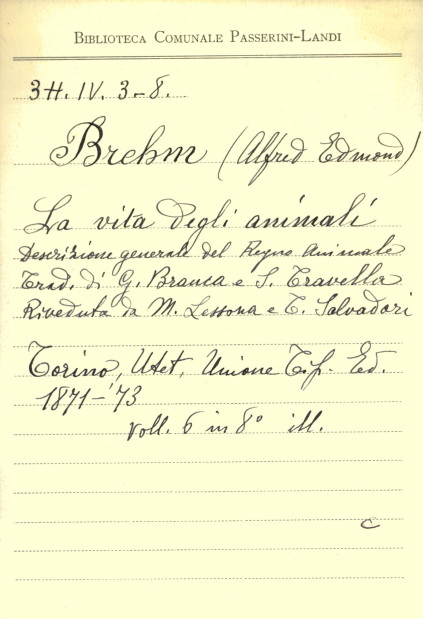 BIBLIOTECA COMUNALE PASSERINI-LANDI
3H. IV. 3-8.
Brehm (Alfred Edmond)
La vita degli animali
Descrizione generale del Regno Animale
Trad. di G. Branca e S. Travella
Riveduta da M. Lessona e T. Salvadori
Torino, Utet, Unione Tip. Ed.
1871-'73
voll. 6 in 8° ill.
C